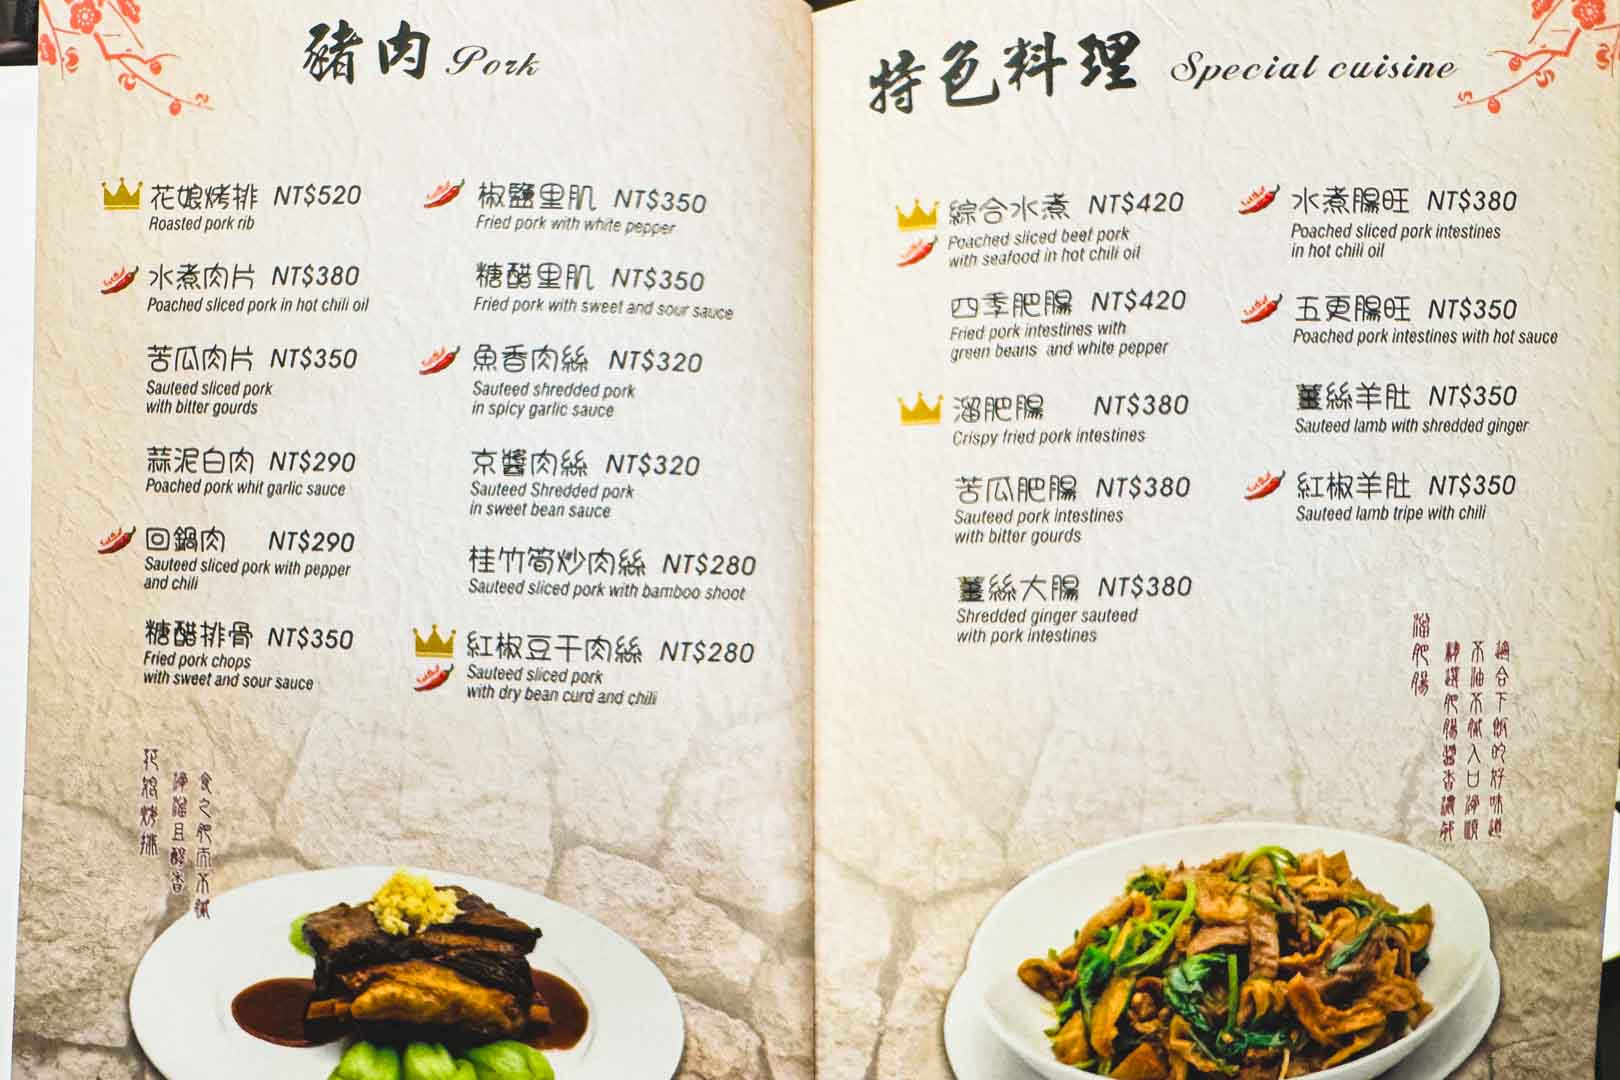 豬肉 Pork
花娘烤排 NT$520
Roasted pork rib
水煮肉片 NT$380
Poached sliced pork in hot chili oil
苦瓜肉片 NT$350
Sauteed sliced pork
with bitter gourds
蒜泥白肉 NT$290
Poached pork whit garlic sauce
回鍋肉 NT$290
Sauteed sliced pork with pepper
and chili
糖醋排骨 NT$350
Fried pork chops
with sweet and sour sauce
椒鹽里肌 NT$350
Fried pork with white pepper
糖醋里肌 NT$350
Fried pork with sweet and sour sauce
魚香肉絲 NT$320
Sauteed shredded pork
in spicy garlic sauce
京醬肉絲 NT$320
Sauteed Shredded pork
in sweet bean sauce
桂竹筍炒肉絲 NT$280
Sauteed sliced pork with bamboo shoot
紅椒豆干肉絲 NT$280
Sauteed sliced pork
with dry bean curd and chili
花娘烤排
食之肥而不膩
滑溜且酥香
特色料理 Special cuisine
綜合水煮 NT$420
Poached sliced beef pork
with seafood in hot chili oil
四季肥腸 NT$420
Fried pork intestines with
green beans and white pepper
溜肥腸 NT$380
Crispy fried pork intestines
苦瓜肥腸 NT$380
Sauteed pork intestines
with bitter gourds
薑絲大腸 NT$380
Shredded ginger sauteed
with pork intestines
水煮腸旺 NT$380
Poached sliced pork intestines
in hot chili oil
五更腸旺 NT$350
Poached pork intestines with hot sauce
薑絲羊肚 NT$350
Sauteed lamb with shredded ginger
紅椒羊肚 NT$350
Sauteed lamb tripe with chili
溜肥腸
適合下飯的好味道
不油不膩入口滑順
精選肥腸醬香濃郁